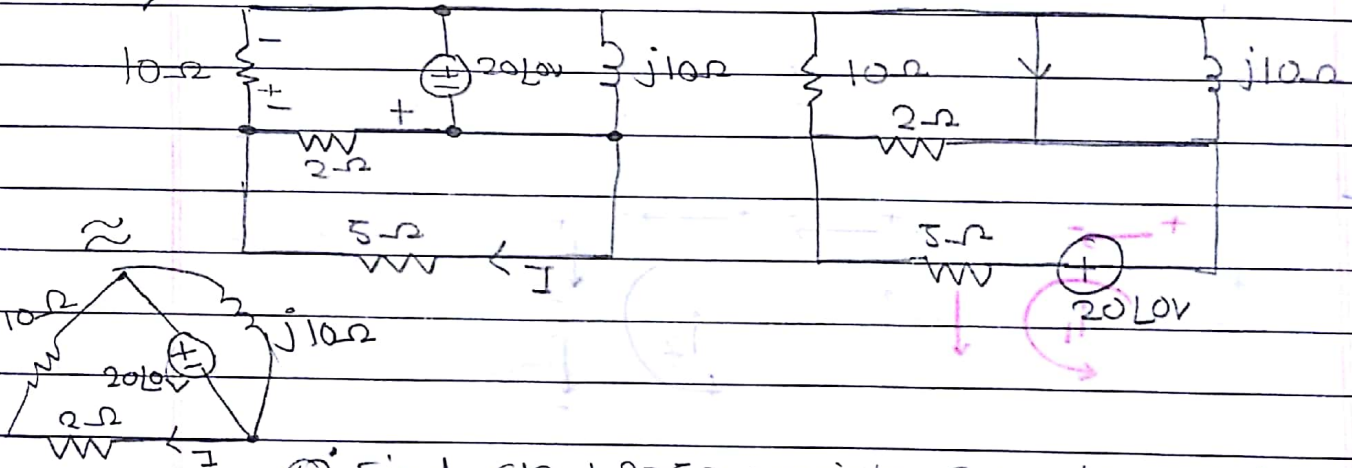 10Ω
20∠0V
j10Ω
10Ω
j10Ω
2Ω
2Ω
5Ω
I
5Ω
20∠0V
10Ω
j10Ω
20∠0V
2Ω
I